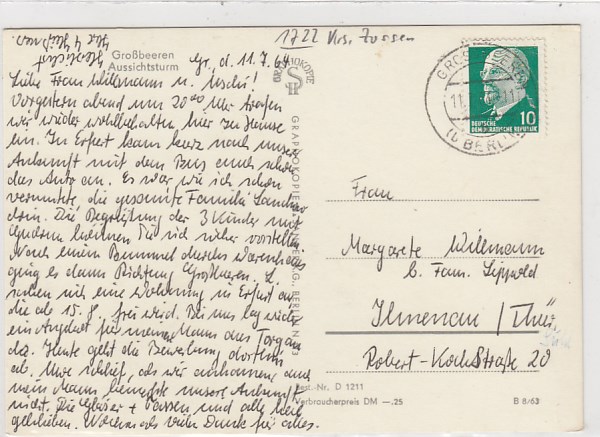 1722 Krs. Zossen
Großbeeren
Aussichtsturm
Gr., d. 11.7.64
Liebe Frau Willmann u. Uschi!
Vorgestern abend um 20⁰⁰ Uhr trafen
wir wieder wohlbehalten hier zu Hause
ein. In Erfurt kam kurz nach unserer
Ankunft mit dem Bus auch schon
das Auto an. Es war, wie ich schon
vermutete, die gesamte Familie
drin. Die Begrüßung der 3 Kinder mit
können Sie sich sicher vorstellen.
Nach einem Bummel durchs Warenhaus
ging es dann Richtung Großbeeren.
sich eine Wohnung in Erfurt an,
die ab 15.8. frei wird. Bei uns lag wieder
ein Angebot für meinen Mann aus Torgau
da. Heute geht die Bewerbung dorthin
ab. Uwe schlief, als wir ankamen, auch
mein Mann bemerkte unsere Ankunft
nicht. Die Gläser + Tassen sind alle heil
geblieben. Nochmals vielen Dank für alles.
GRAPHOKOPIE
BERLIN N
DEUTSCHE
DEMOKRATISCHE REPUBLIK
10
GROSSBEEREN
(b BERLIN)
Frau
Margarete Willmann
b. Fam. Lippold
Ilmenau / Thür.
Robert-Koch Straße 20
Best.-Nr. D 1211
Verbraucherpreis DM —.25
B 8/63